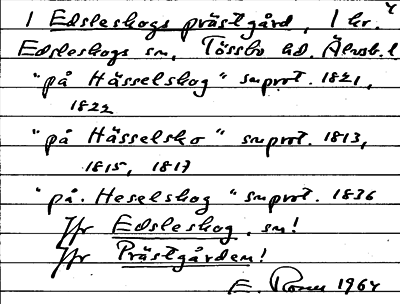 1 Edsleskogs prästgård, 1 kr.
Edsleskogs sn, Tössbo hd. Älvsb. l
"på Hässelskog" snprot. 1821,
1822
"på Hässelsko" snprot. 1813,
1815, 1817
"på Heselskog" snprot. 1836
Jfr Edsleskog, sn!
Jfr Prästgården!
E. 1964